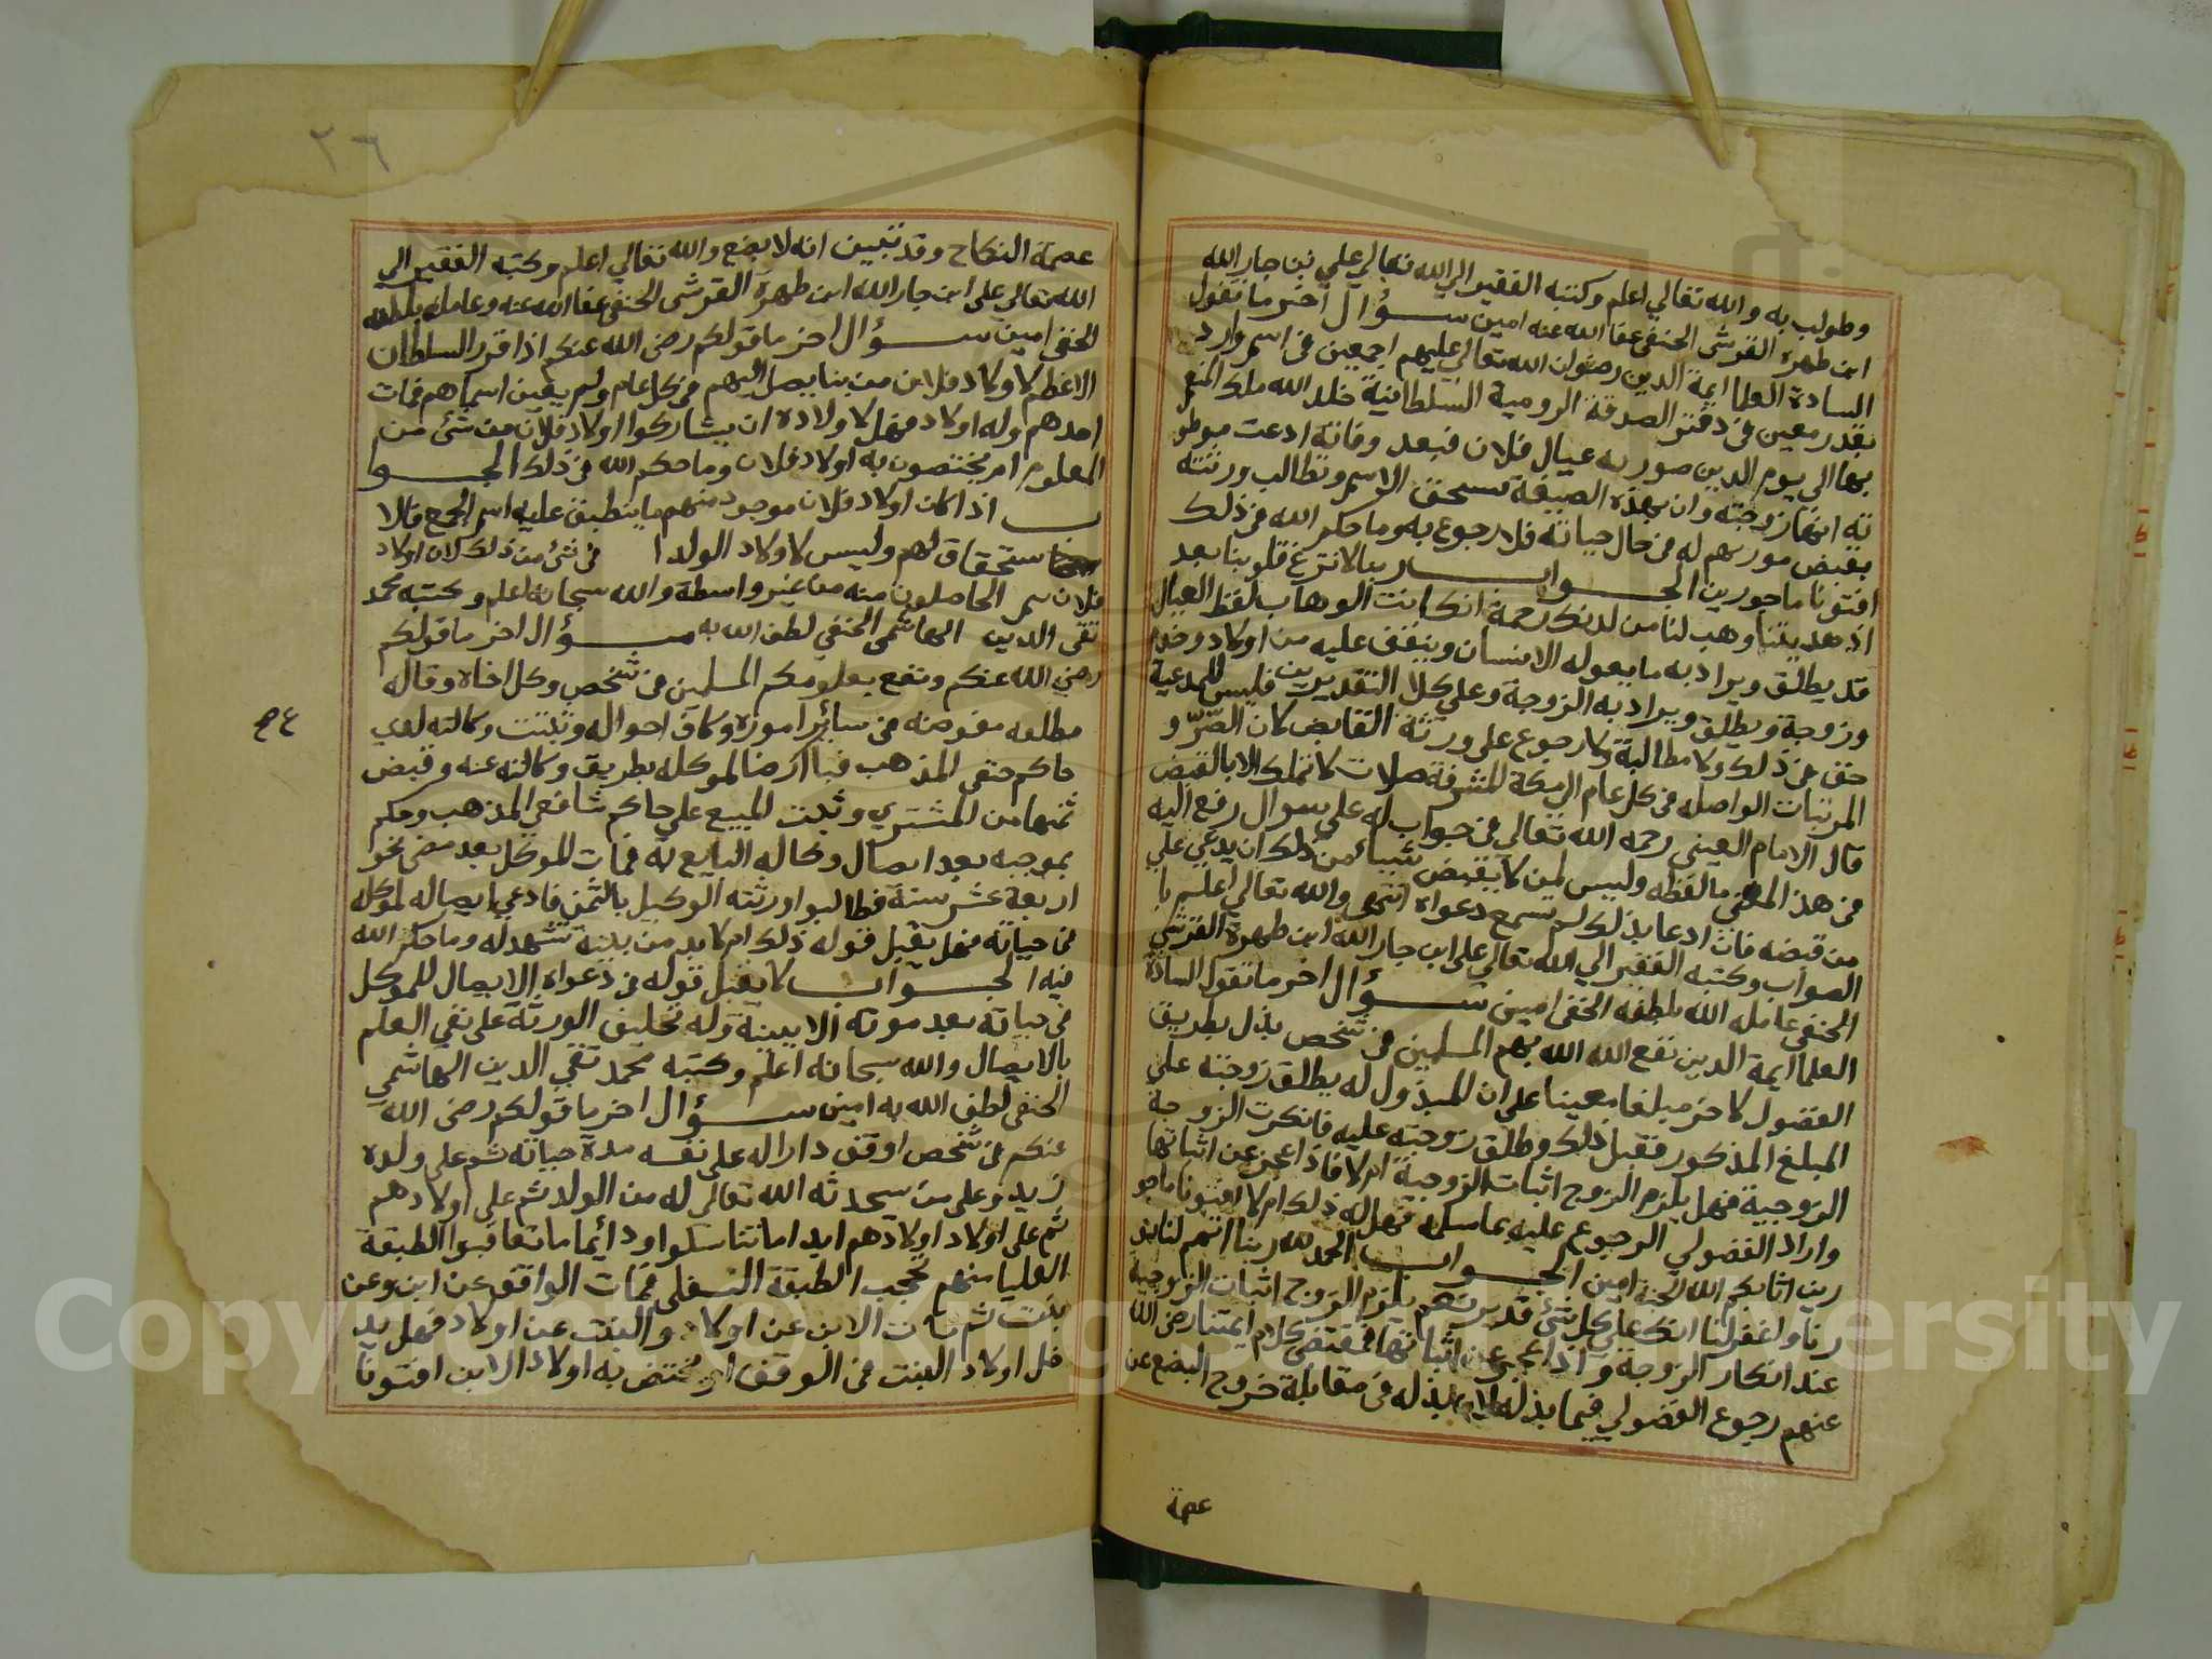 وطولب به والله تعالي اعلم وكتبه الفقير الي الله تعالي علي بن جار الله
ابن ظهيرة القرشي الحنفي عفا الله عنه امين سؤال اخر ما تقول
السادة العلما ايمة الدين رضوان الله تعالي عليهم اجمعين في اسم وارد
بقدر معين في دفتر الصدقة الرومية السلطانية خلد الله ملك المنعم
بها الي يوم الدين صورته عيال فلان فبعد وفاته ادعت
انها زوجته وان بهذه الصيغة تستحق الاسم وتطالب ورثته
بقبض مورثهم له في حال حياته فلا رجوع به وما حكم الله في ذلك
افتونا ماجورين الجواب ربنا لا تزغ قلوبنا بعد
اذ هديتنا وهب لنا من لدنك رحمة انك انت الوهاب لفظ العيال
قد يطلق ويراد به ما يعوله الانسان وينفق عليه من اولاد وخدم
وزوجة ويطلق ويراد به الزوجة وعلي كلا التقديرين فليس للمدعية
حق في ذلك ولا مطالبة ولا رجوع علي ورثة القابض كان الصر و
المرتبات الواصله في كل عام الي مكة المشرفة صلات لا تملك الا بالقبض
قال الامام العيني رحمه الله تعالي في جواب له علي سوال رفع اليه
في هذا المعني ما لفظه وليس لمن لا يقبض شيياء من ذلك ان يدعي علي
من قبضه فان ادعا بذلك لم تسمع دعواه انتهى والله تعالي اعلم با
الصواب وكتبه الفقير الي الله تعالي علي ابن جار الله ابن ظهيرة القرشي
الحنفي عامله الله بلطفه الخفي امين سؤال اخر ما تقول السادة
العلما ايمة الدين نفع الله الله بهم المسلمين في شخص بذل بطريق
الفضول لاخر مبلغا معينا علي ان المبذول له يطلق زوجته علي
المبلغ المذكور فقبل ذلك وطلق زوجته عليه فانكرت الزوجة
الزوجية فهل يلزم الزوج اثبات الزوجية ام لا فاذا عجز عن اثباتها
واراد الفضولي الرجوع عليه بما سلمه فهل له ذلك ام لا افتونا ماجو
رين اثابكم الله الجنة امين الجواب الحمد لله ربنا اتمم لنا نو
رنا واغفر لنا انك علي كل شئ قدير نعم يلزم الزوج اثبات الزوجية
عند انكار الزوجة و اذا عجز عن اثباتها فمقتضى كلام ايمتنا رضي الله
عنهم رجوع الفضولي فيما بذله بذله في مقابلة خروج البضع عن
عصمة
٢٦
عصمة النكاح وقد تبين انه لا بضع والله تعالي اعلم وكتبه الفقير الي
الله تعالي علي ابن جار الله ابن ظهيرة القرشي الحنفي عفا الله عنه وعامله بلطفه
الخفي امين سؤال اخر ما قولكم رضي الله عنكم اذا قرر السلطان
الاعظم لاولاد فلان يصل اليهم في كل عام ولم يعين اسماهم فمات
احدهم وله اولاد فهل لاولاده ان يشاركوا اولاد فلان في شئ من
المعلوم ام يختصون به اولاد فلان وما حكم الله في ذلك الجوا
ب اذا كان اولاد فلان موجود منهم ما ينطبق عليه اسم الجمع فالا
ستحقاق لهم وليس لاولاد الولد ا في شئ من ذلك لان اولاد
فلان الحاصلون منه من غير واسطة والله سبحانه اعلم وكتبه محمد
تقي الدين الهاشمي الحنفي لطف الله به سؤال اخر ما قولكم
رضي الله عنكم ونفع بعلومكم المسلمين في شخص وكل اخاه وقاله
مطلقه مفوضه في سائر اموره وكافة احواله وثبتت وكالته لدي
حاكم حنفي المذهب فباع ارضا لموكله بطريق وكالته عنه وقبض
ثمنها من المشتري وثبت المبيع علي حاكم شافعي المذهب وحكم
بموجبه بعد ايصال وكاله البايع له فمات الموكل بعد مضي نحو
اربعة عشر سنة فطالبوا ورثته الوكيل بالثمن فادعي ايصاله لموكله
في حياته فهل يقبل قوله في ذلك ام لا بد من بينة تشهد له وما حكم الله
فيه الجواب لا يقبل قوله في دعواه الايصال للموكل
في حياته بعد موته الا ببينة وله تحليف الورثة علي نفي العلم
بالايصال والله سبحانه اعلم وكتبه محمد تقي الدين الهاشمي
الحنفي لطف الله به امين سؤال اخر ما قولكم رضي الله
عنكم في شخص اوقف دارا له علي نفسه مدة حياته ثم علي ولده
زيد وعلي من سيحدثه الله تعالي له من الولد ثم علي اولادهم
ثم علي اولاد اولادهم ابدا ما تناسلوا ودائما ما تعاقبوا الطبقة
العليا منهم تحجب الطبقة السفلي فمات الواقف عن ابن وعن
بنت ثم مات الابن عن اولاد والبنت عن اولاد فهل يد
خل اولاد البنت في الوقف ام يختص به اولاد الابن افتونا
Copyright © King Saud University